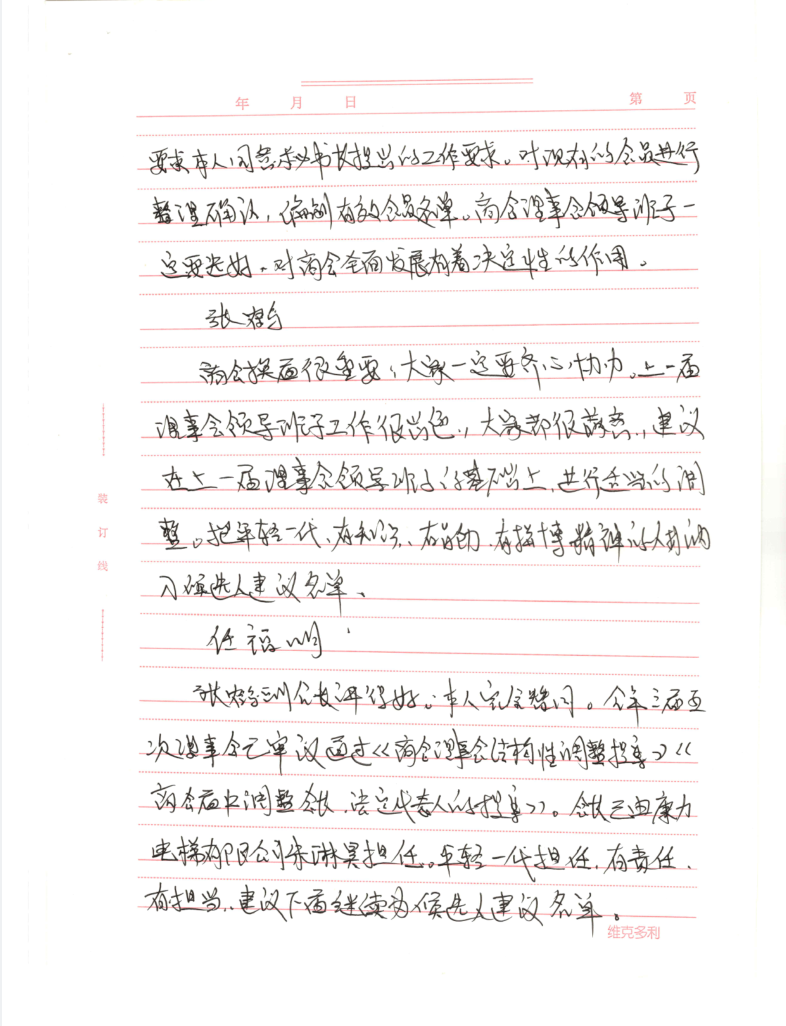 年 月 日 第 页
要求本人同意秘书长提出的工作要求。对现有的会员进行
整理确认，编制有效会员名单。商会理事会领导班子一
定要选好。对商会全面发展有着决定性的作用。
张
商会换届很重要，大家一定要齐心协力。上一届
理事会领导班子工作很出色，大家都很满意，建议
在上一届理事会领导班子的基础上，进行适当的调
整。把年轻一代、有知识、有能力、有拼搏精神的人才纳
入候选人建议名单。
任福明
张 副会长讲得好。本人完全赞同。今年三届五
次理事会已审议通过《商会理事会结构性调整提案》《
商会届中调整会长、法定代表人的提案》。会长已由康力
电梯有限公司朱琳昊担任。年轻一代担任，有责任、
有担当、建议下届继续为候选人建议名单。
装
订
线
维克多利